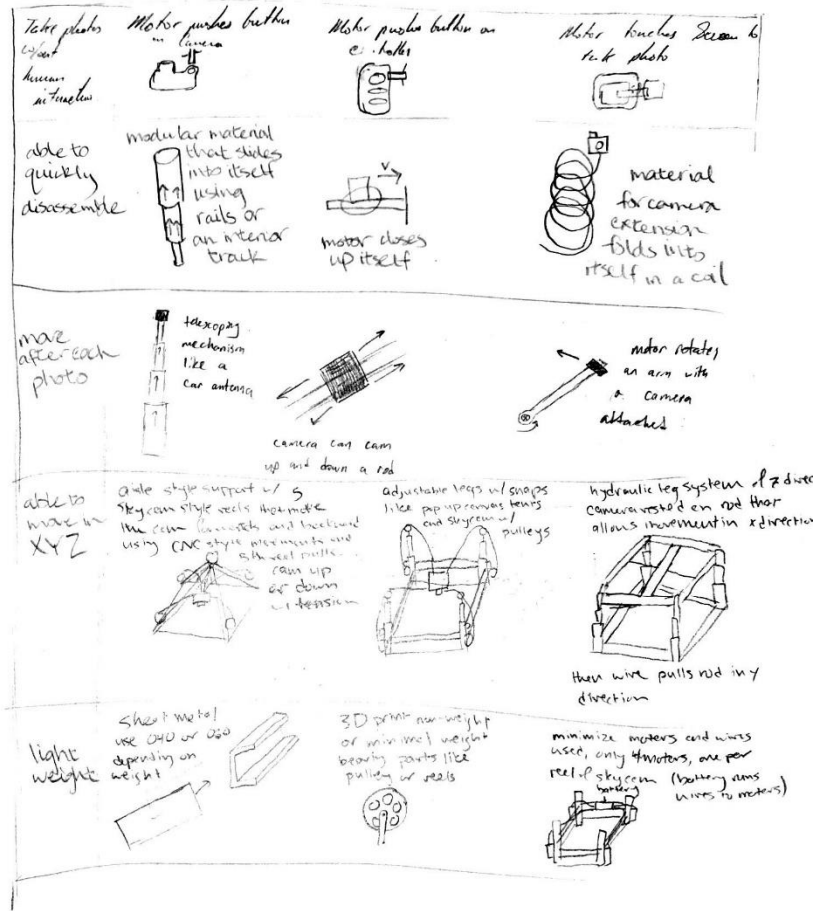 Take photos
w/out
human
interaction
Motor pushes button
on camera
Motor pushes button on
Motor touches Screen to
take photo
able to
quickly
disassemble
modular material
that slides
into itself
using
rails or
an interior
track
V
motor closes
up itself
material
for camera
extension
folds into
itself in a coil
move
after each
photo
telescoping
mechanism
like a
car antenna
camera can cam
up and down a rod
motor rotates
an arm with
a camera
attached
able to
move in
XYZ
style support w/ 5
skycam style reels that move
the cam and backward
using CNC style movements and
5th reel pulls
cam up
or down
w/ tension
adjustable legs w/ snaps
like pop up canvas tents
and skycam w/
pulleys
hydraulic leg system of z direc
camera rested on rod that
allows movement in x direction
then wire pulls rod in y
direction
light
weight
sheet metal
use 040 or 060
depending on
weight
3D print non-weight
or minimal weight
bearing parts like
pulley or reels
minimize moters and wires
used, only 4 moters, one per
reel of skycam (battery runs
wires to moters)
battery